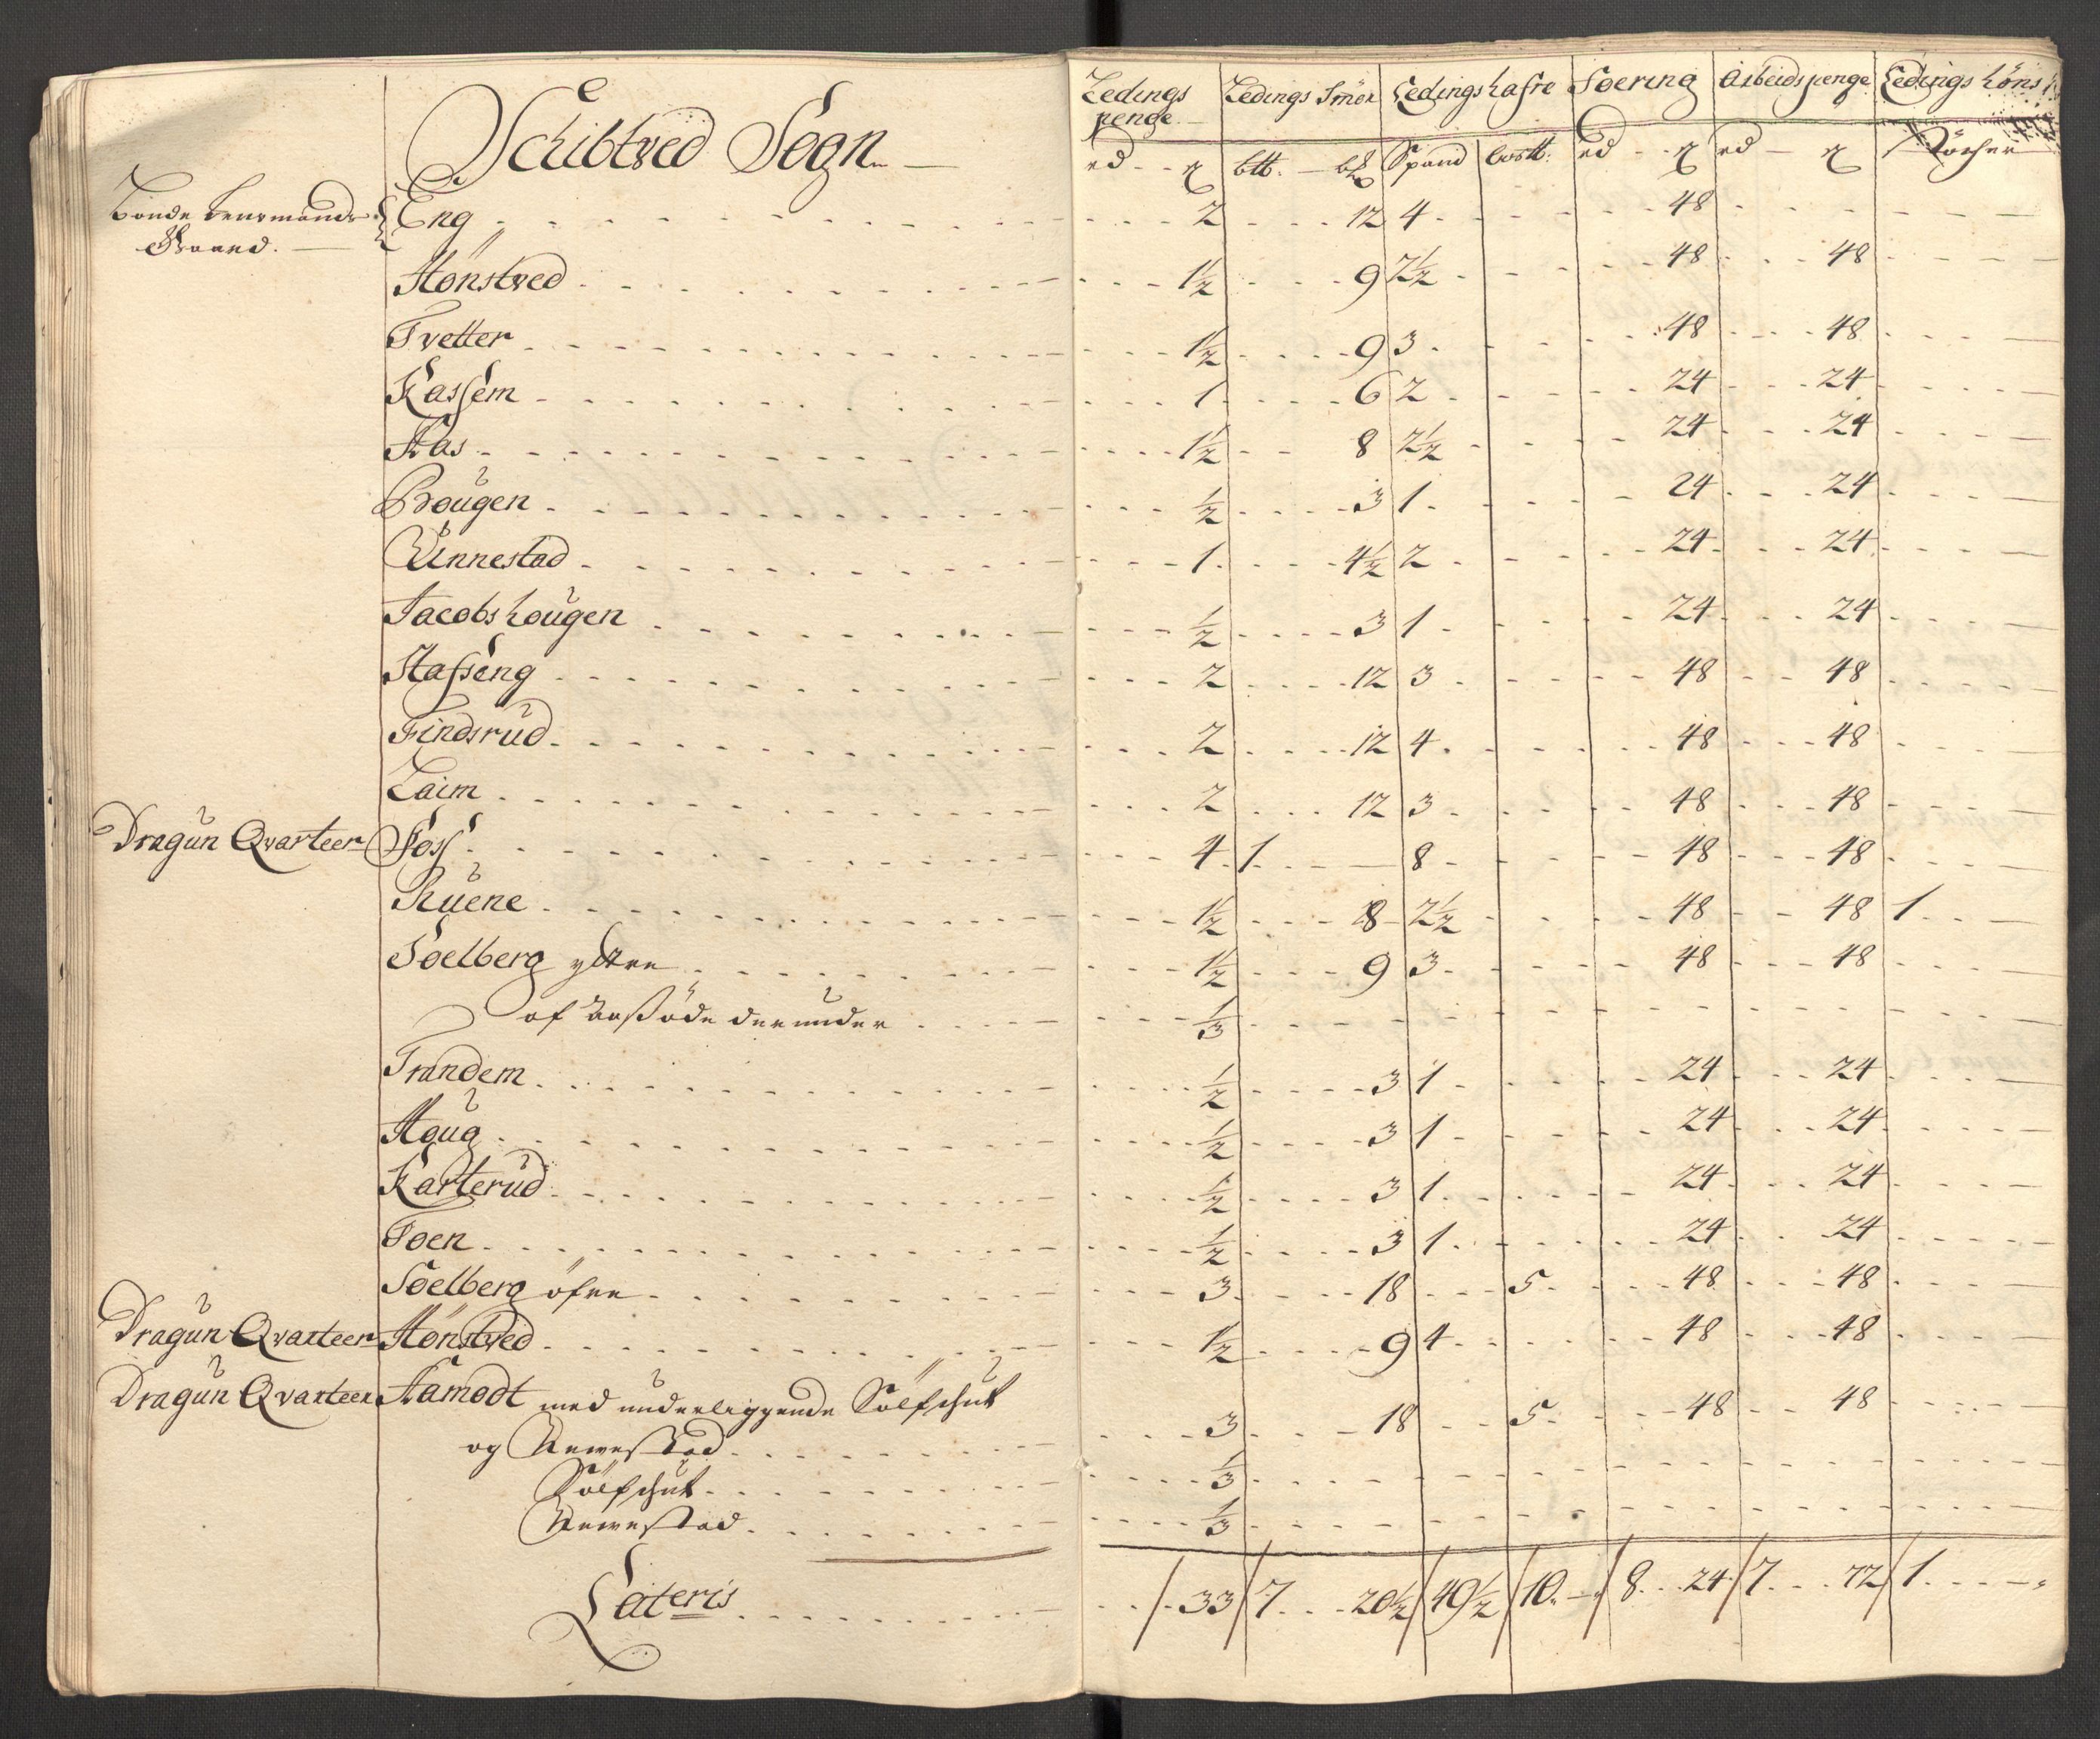 Schibtved Sogn
Ledings penge | Ledings Smör | Ledings hafre | Foering | Arbeids penge | Ledings höns
rd - ꝣ | btt. - btz | Spand | | rd - ꝣ | rd - ꝣ |
Bonde Lensmands Gaard. Eng 2 12 4 48
Hönstved 1½ 9 2½ 48 48
Tvetter 1½ 9 3 48 48
Kassem 1 6 2 24 24
Aas 1½ 8 2½ 24 24
Brougen ½ 3 1 24 24
Unnestad 1 4½ 2 24 24
Jacobshougen ½ 3 1 24 24
Stafseng 2 12 3 48 48
Findsrud 2 12 4 48 48
Laim 2 12 3 48 48
Dragun Qvarteer Foss 4 1 — 8 48 48
Ruene 1½ 8 2½ 48 48 1
Soelberg yttre 1½ 9 3 48 48
af derunder ⅓
Trandem ½ 3 1 24 24
Houg ½ 3 1 24 24
Karterud ½ 3 1 24 24
Toen ½ 3 1 24 24
Soelberg öfre 3 18 5 48 48
Dragun Qvarteer Hönstved 1½ 9 4 48 48
Dragun Qvarteer Aamodt med underliggende Sölfhut
og Unnestad 3 18 5 48 48
Sölfhut ⅓
Unnestad ⅓
Lateris 33 7 20½ 49½ 10 8 24 7 72 1